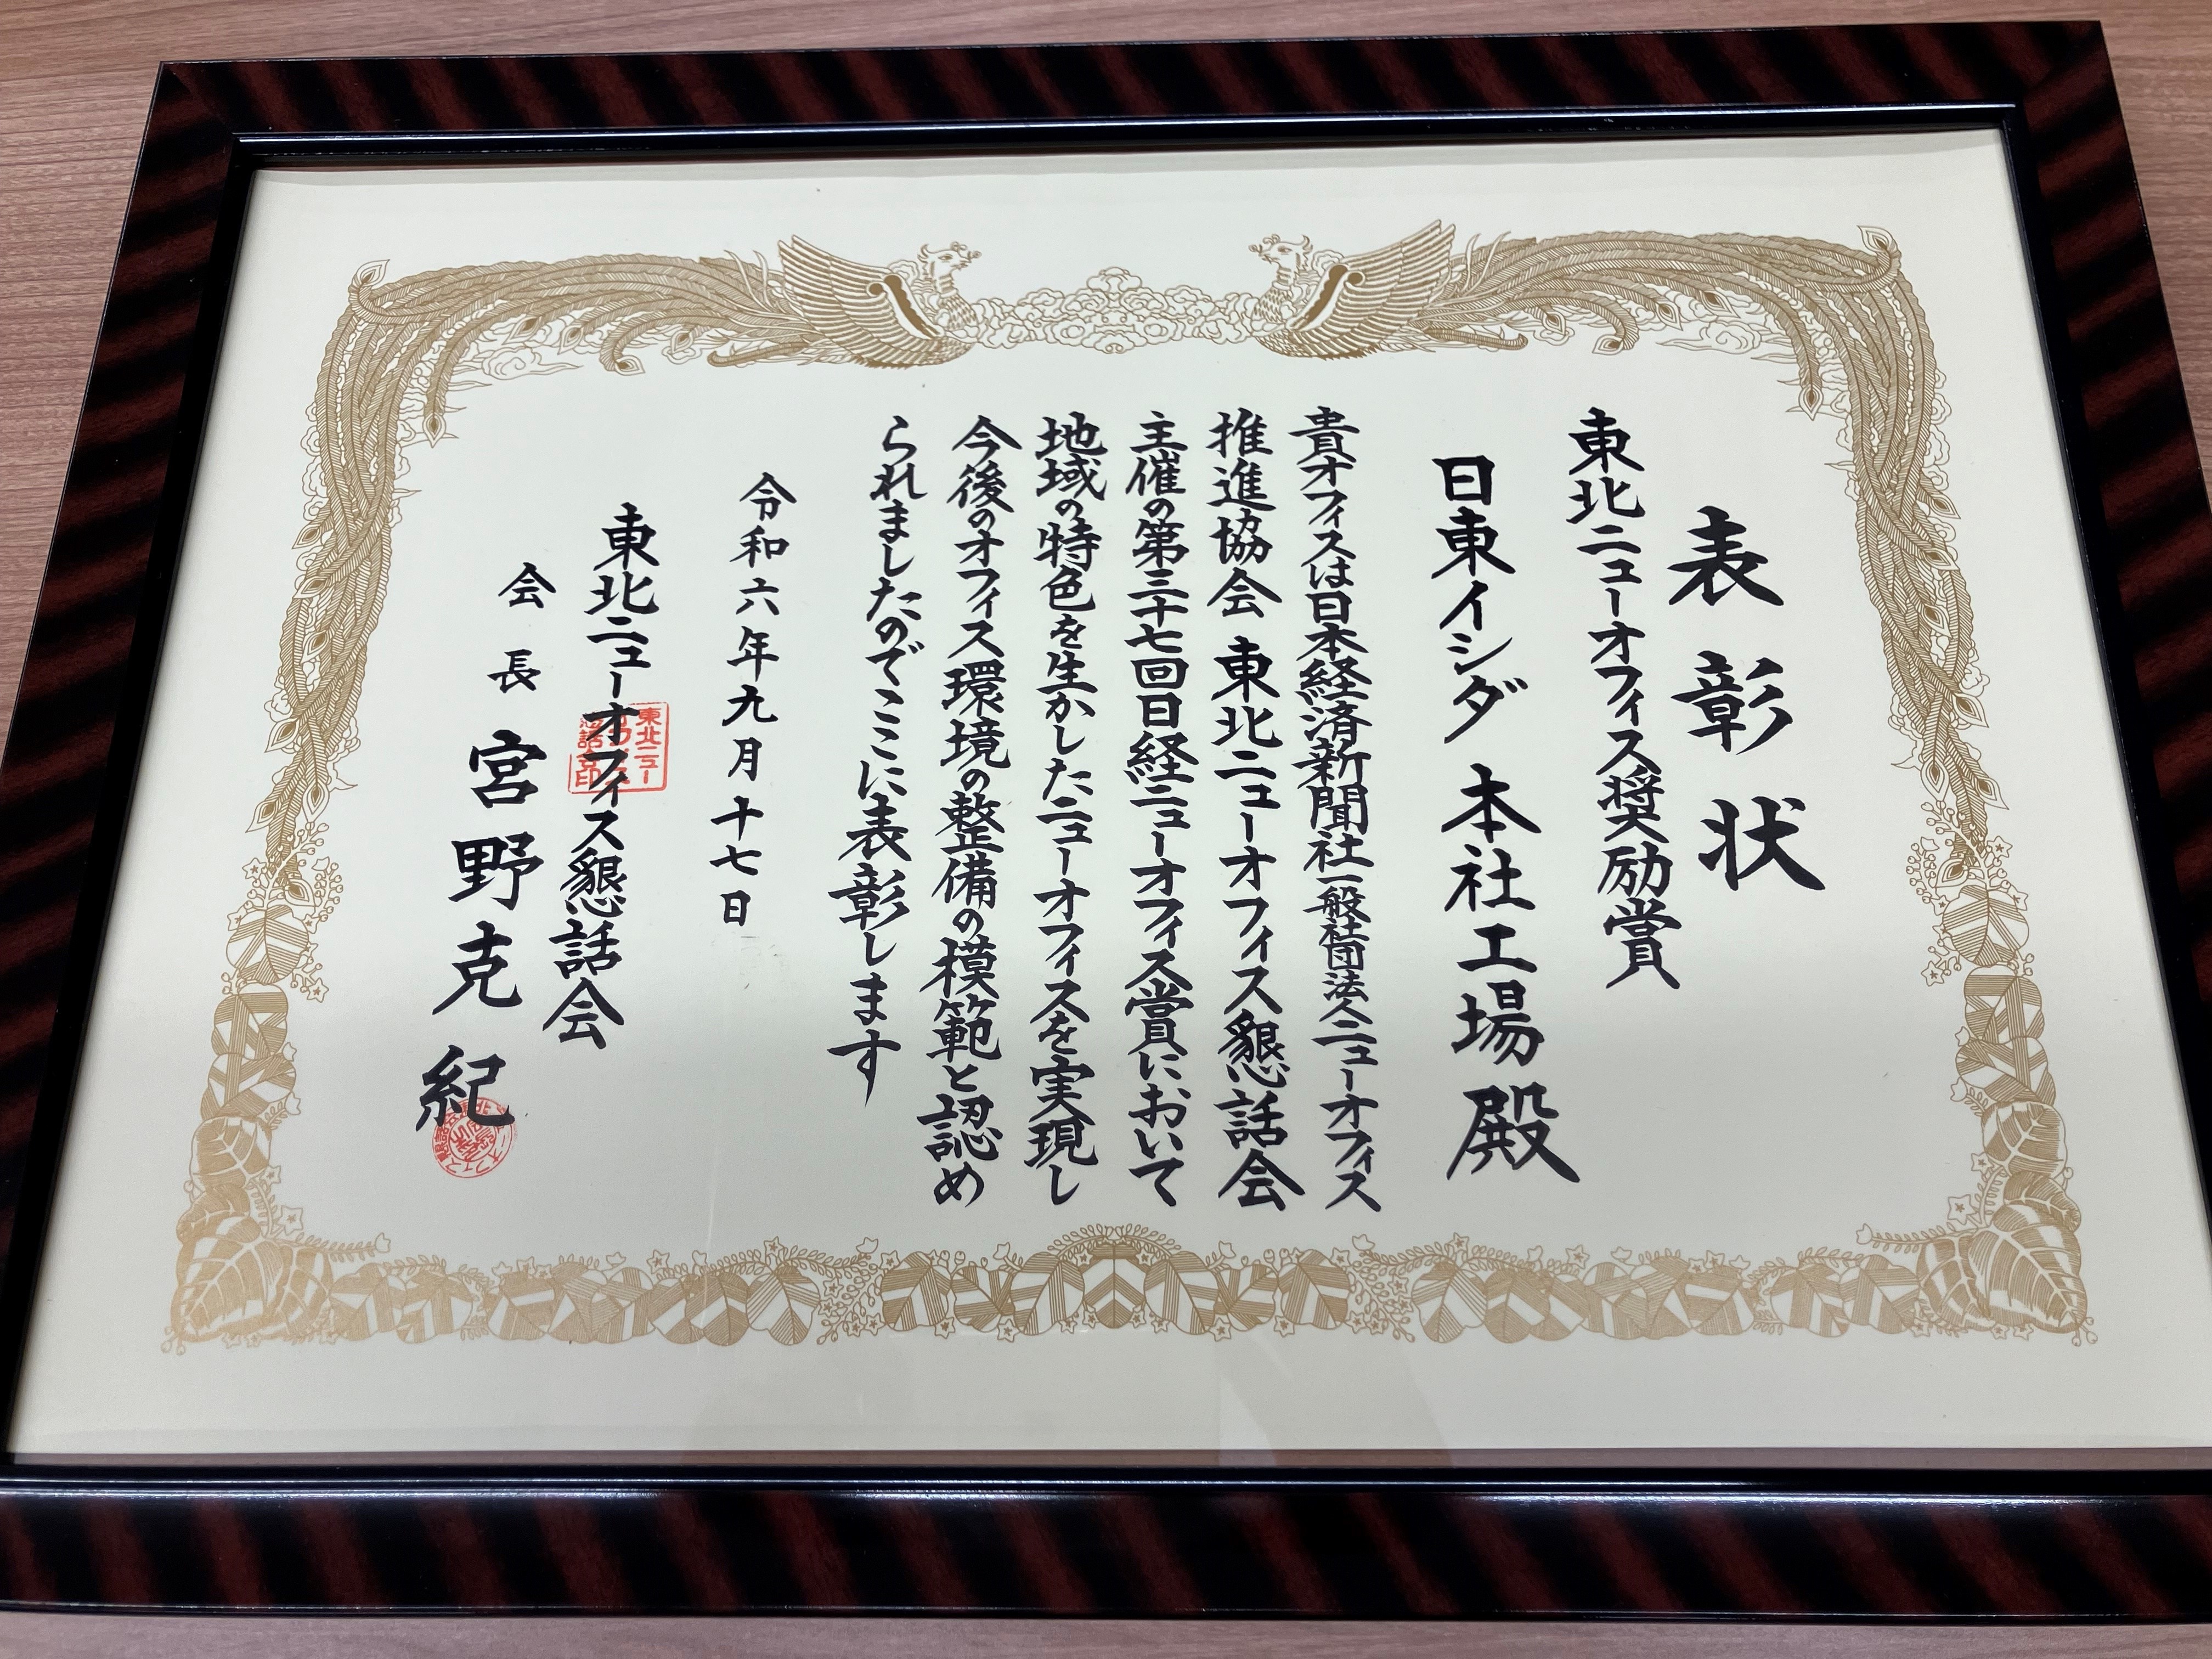 表彰状
東北ニューオフィス奨励賞
日東イシダ 本社工場殿
貴オフィスは日本経済新聞社一般社団法人ニューオフィス
推進協会 東北ニューオフィス懇話会
主催の第三十七回日経ニューオフィス賞において
地域の特色を生かしたニューオフィスを実現し
今後のオフィス環境の整備の模範と認め
られましたのでここに表彰します
令和六年九月十七日
東北ニューオフィス懇話会
会長 宮野克紀